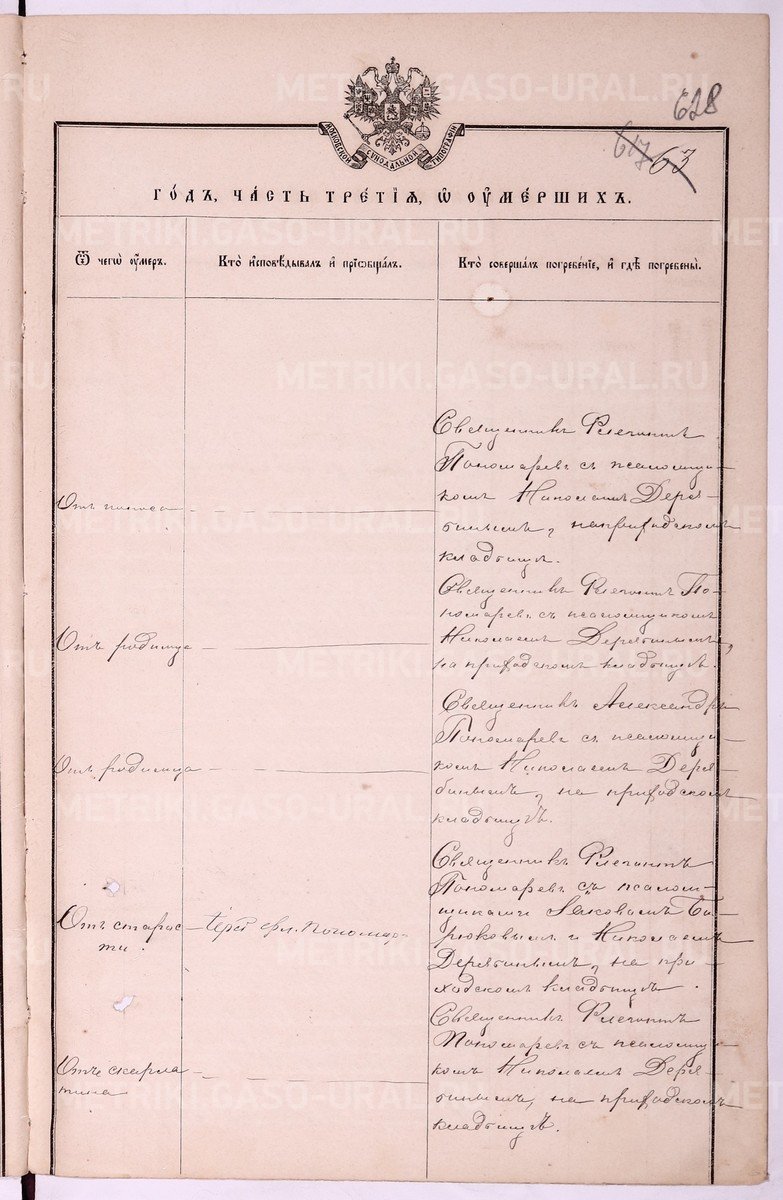 628
617 63
МОСКОВСКОЙ СѴНОДАЛЬНОЙ ТИПОГРАФІИ
ГО́ДЪ, ЧА́СТЬ ТРЕ́ТІЯ, Ѡ ОУМЕ́РШИХЪ.
Ѿ чегѡ̀ оу́меръ.
Кто̀ и҆сповѣ́дывалъ и҆ прїѻбща́лъ.
Кто̀ соверша́лъ погребе́нїе, и҆ гдѣ̀ погребены̀.
Священникъ Флегонтъ
Пономаревъ съ псаломщи-
комъ Николаемъ Деря-
бинымъ, на приходскомъ
кладбищѣ.
Отъ поноса
Священникъ Флегонтъ По-
номаревъ съ псаломщикомъ
Николаемъ Дерябинымъ,
на приходскомъ кладбищѣ.
Отъ родимца
Священникъ Александръ
Пономаревъ съ псаломщи-
комъ Николаемъ Деря-
бинымъ, на приходскомъ
кладбищѣ.
Отъ родимца
Священникъ Флегонтъ
Пономаревъ съ псалом-
щиками Іаковомъ Би-
рюковымъ и Николаемъ
Дерябинымъ, на при-
ходскомъ кладбищѣ.
Отъ старос-
ти.
Фл. Пономар.
Священникъ Флегонтъ
Пономаревъ съ псаломщи-
комъ Николаемъ Деря-
бинымъ, на приходскомъ
кладбищѣ.
Отъ скарла-
тина
METRIKI.GASO-URAL.RU